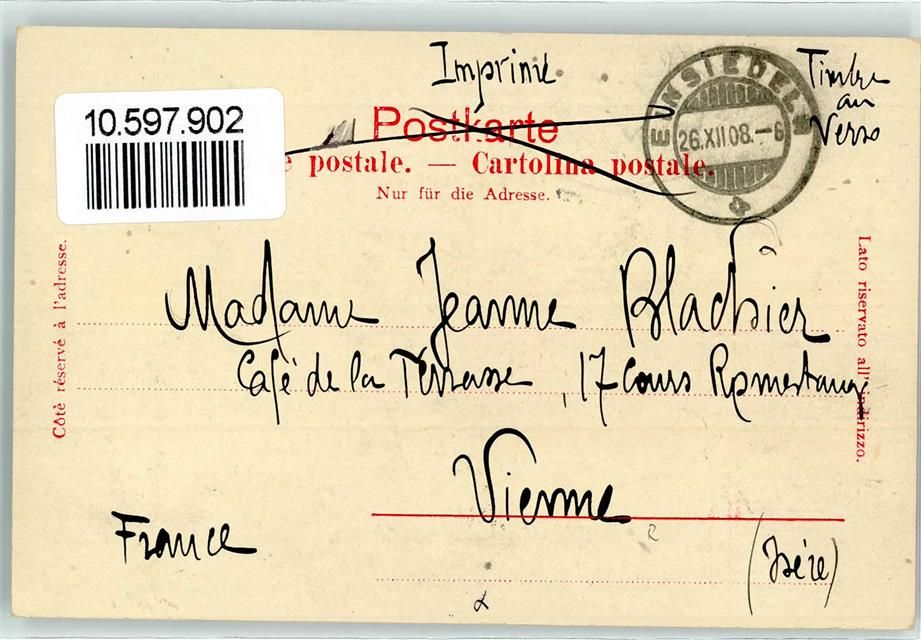 Imprimé
Timbre
au
Verso
10.597.902
Postkarte
e postale. — Cartolina postale.
Nur für die Adresse.
EINSIEDELN
26.XII.08.-6
Côté réservé à l'adresse.
Lato riservato all'indirizzo.
Madame Jeanne Blachier
Café de la Terrasse, 17 Cours Romestang
Vienne
(Isère)
France